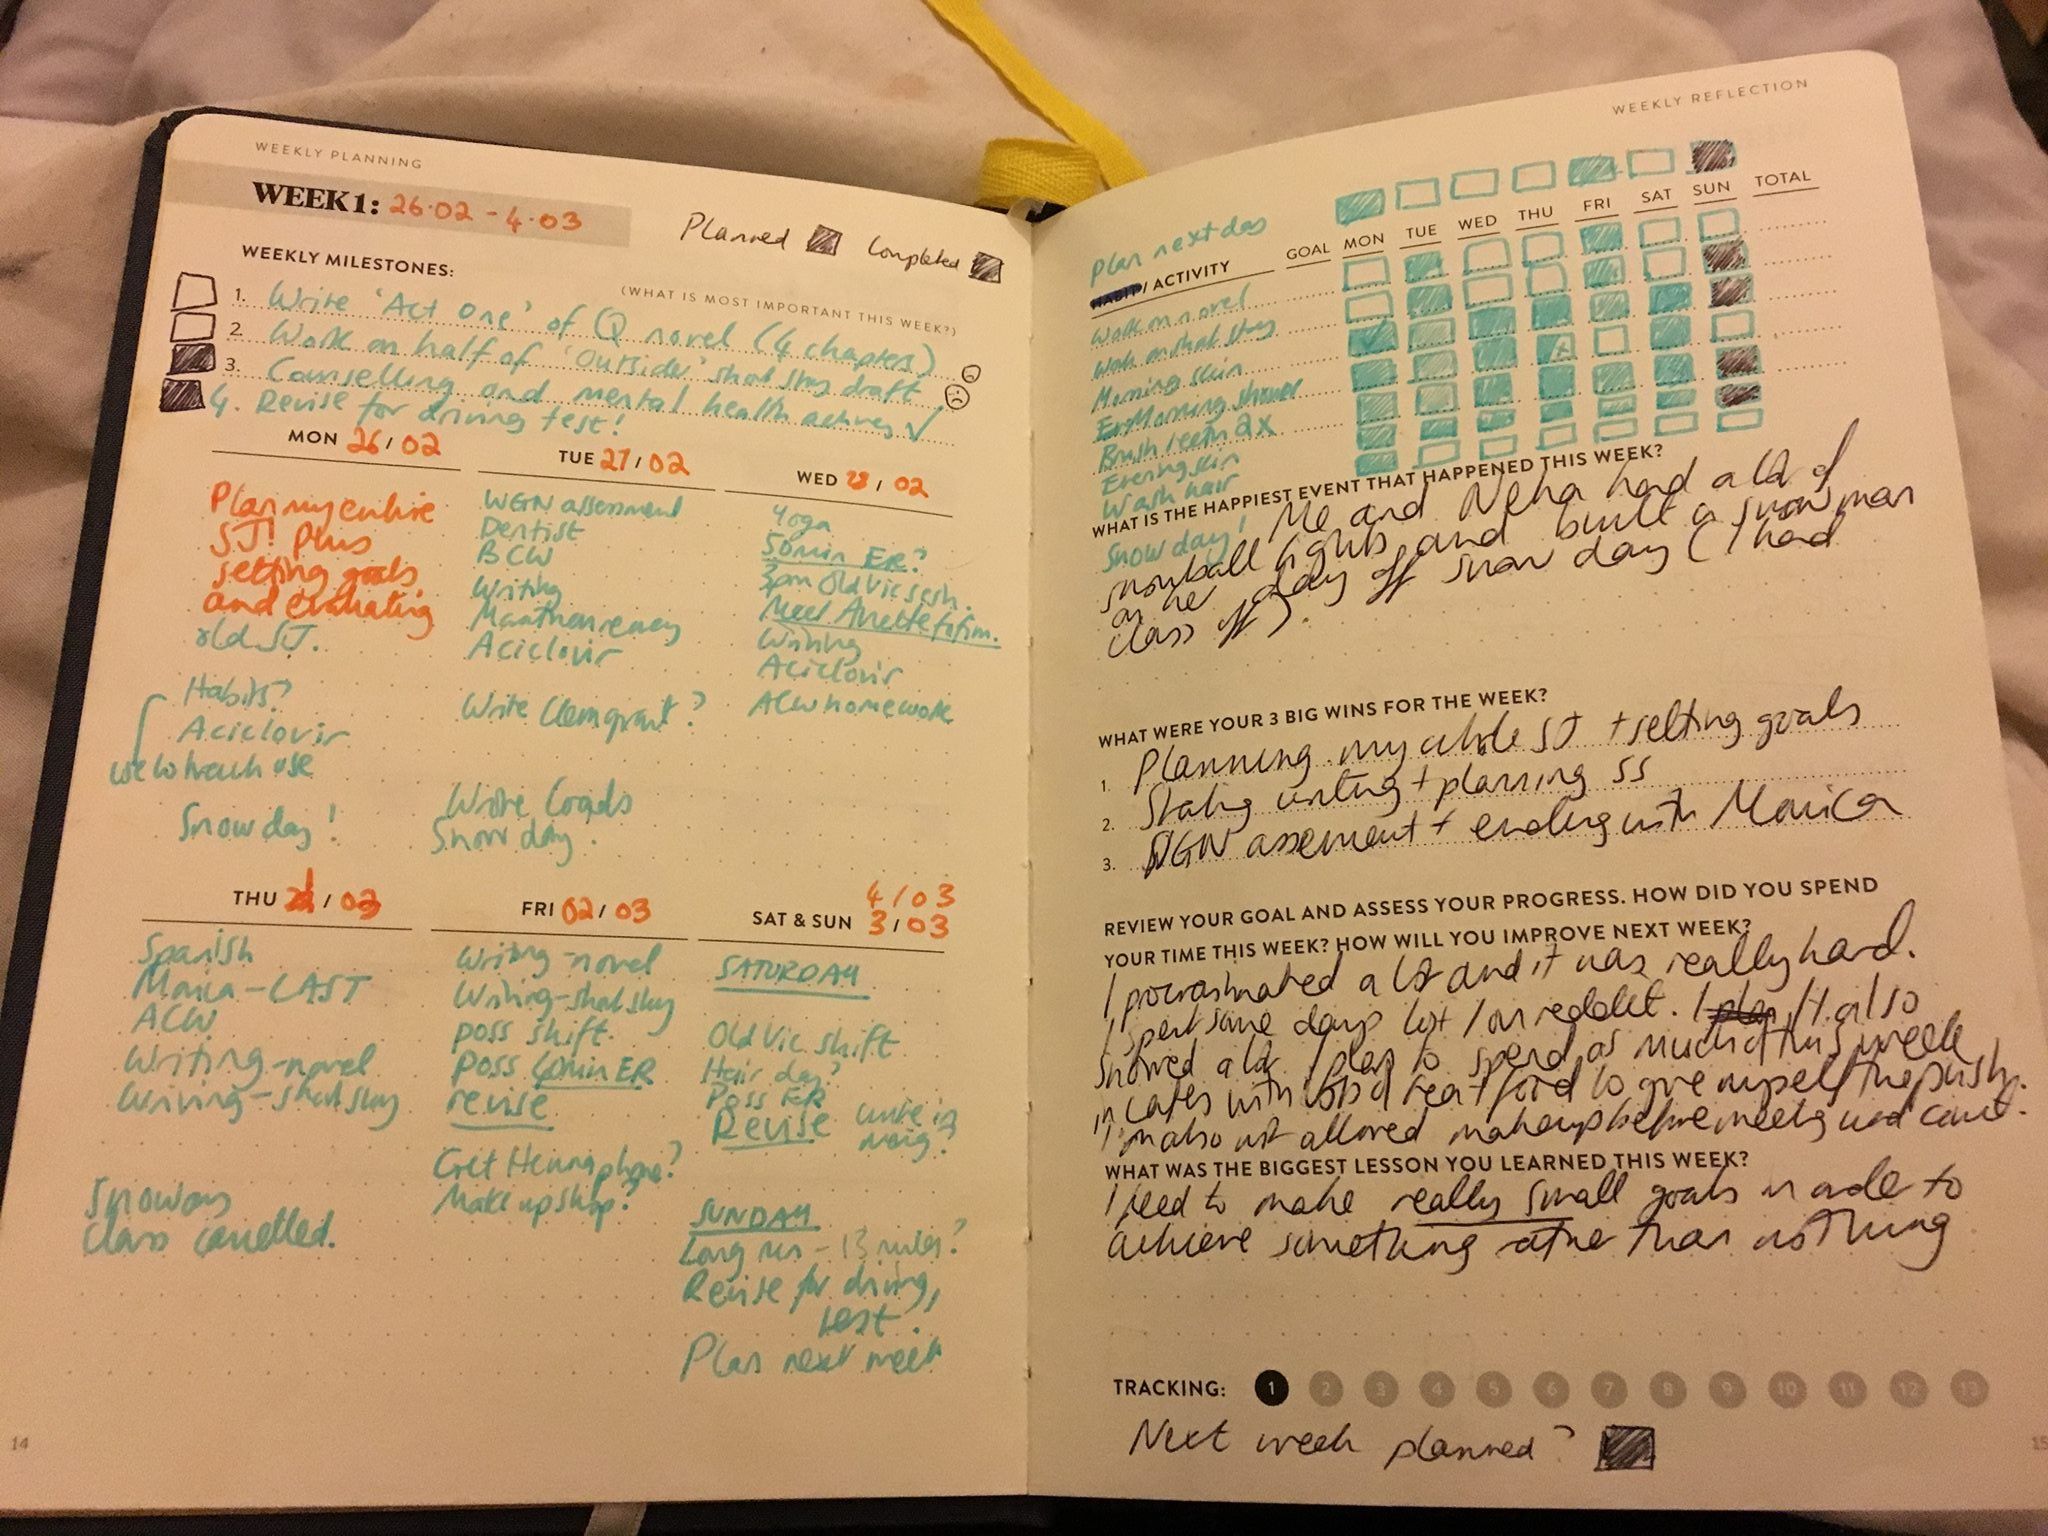 WEEKLY PLANNING
WEEK 1: 26.02 - 4.03
Planned
Completed
WEEKLY MILESTONES:
(WHAT IS MOST IMPORTANT THIS WEEK?)
1. Write 'Act One' of Q novel (4 chapters)
2. Work on half of 'Outside' short story draft
3. Counselling and mental health actives ✓
4. Revise for driving test!
MON 26/02
Plan my entire
SJ! Plus
setting goals
and evaluating
old SJ.
Habits?
Aciclovir
Snow day!
TUE 27/02
WGN assessment
Dentist
BCW
Writing
Aciclovir
Write Clem grant?
Wrote loads
Snow day.
WED 28/02
Yoga
50min ER?
3pm Old Vic sesh.
Meet Anette
Writing
Aciclovir
ACW homework
THU 1/03
Spanish
Monica - LAST
ACW
Writing - novel
Writing - short story
Snow day
Class cancelled.
FRI 02/03
Writing - novel
Writing - short story
poss shift.
poss 60min ER
revise
Get Henna phone?
Makeup shop?
4/03
SAT & SUN 3/03
SATURDAY
Old Vic shift
Hair day?
Poss ER
Revise
SUNDAY
Long run - 13 miles?
Revise for driving
test.
Plan next week
14
WEEKLY REFLECTION
Plan next day
HABIT / ACTIVITY GOAL MON TUE WED THU FRI SAT SUN TOTAL
Work on novel
Work on short story
Morning skin
Morning shower
Brush teeth 2x
Evening skin
Wash hair
WHAT IS THE HAPPIEST EVENT THAT HAPPENED THIS WEEK?
Snow day! Me and Neha had a lot of
snowball fights and built a snowman
on her day off snow day (I had
class off).
WHAT WERE YOUR 3 BIG WINS FOR THE WEEK?
1. Planning my whole SJ + setting goals
2. Stating writing + planning SS
3. WGN assement + ending with Monica
REVIEW YOUR GOAL AND ASSESS YOUR PROGRESS. HOW DID YOU SPEND
YOUR TIME THIS WEEK? HOW WILL YOU IMPROVE NEXT WEEK?
I procrastinated a lot and it was really hard.
I spent some days lost / on reddit. I plan It also
snowed a lot. I plan to spend as much of this week
in cafes with food to give myself the push.
I'm also not allowed makeup before meeting word count.
WHAT WAS THE BIGGEST LESSON YOU LEARNED THIS WEEK?
I need to make really small goals in order to
achieve something rather than nothing
TRACKING: 1 2 3 4 5 6 7 8 9 10 11 12 13
Next week planned?
15